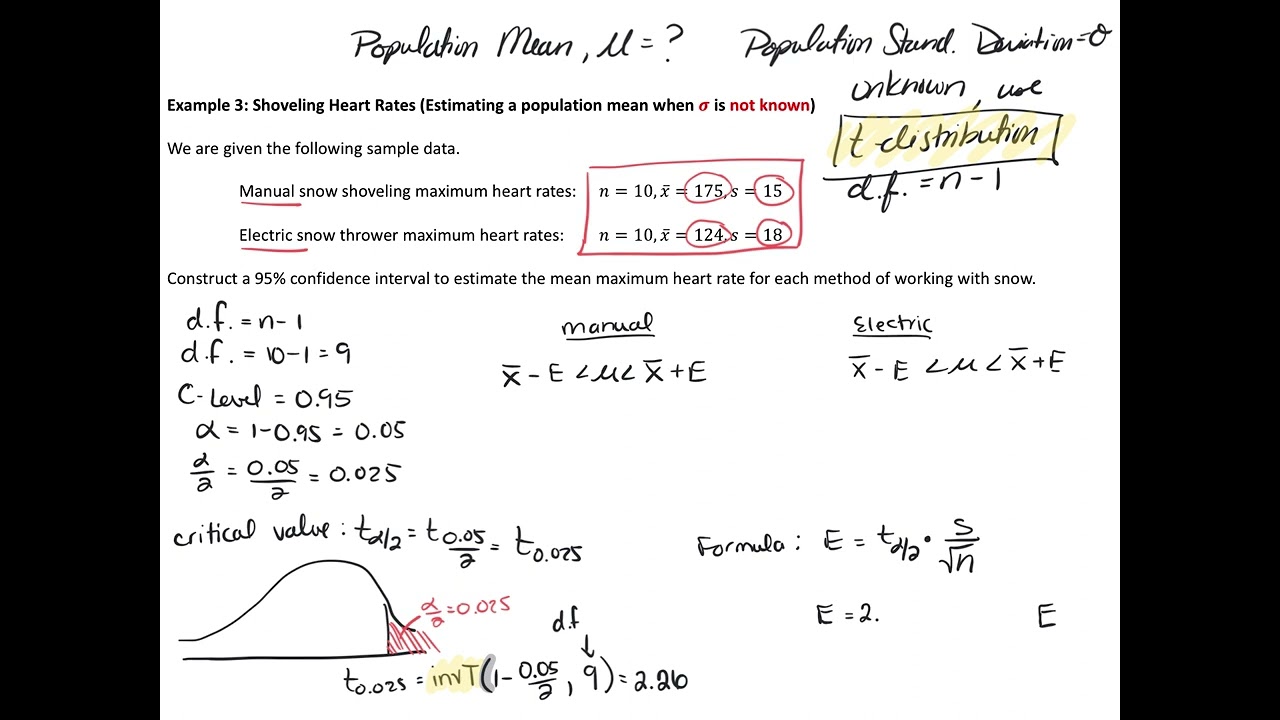 Population Mean, μ = ? Population Stand. Deviation = σ
unknown, use
t distribution
d.f. = n - 1
Example 3: Shoveling Heart Rates (Estimating a population mean when σ is not known)
We are given the following sample data.
Manual snow shoveling maximum heart rates: n = 10, x̄ = 175, s = 15
Electric snow thrower maximum heart rates: n = 10, x̄ = 124, s = 18
Construct a 95% confidence interval to estimate the mean maximum heart rate for each method of working with snow.
d.f. = n - 1
d.f. = 10 - 1 = 9
C-Level = 0.95
α = 1 - 0.95 = 0.05
α/2 = 0.05/2 = 0.025
manual
x̄ - E < μ < x̄ + E
Electric
x̄ - E < μ < x̄ + E
critical value : t_α/2 = t_0.05/2 = t_0.025
α/2 = 0.025
d.f
t_0.025 = invT(1 - 0.05/2, 9) = 2.26
Formula : E = t_α/2 · s/√n
E = 2. E